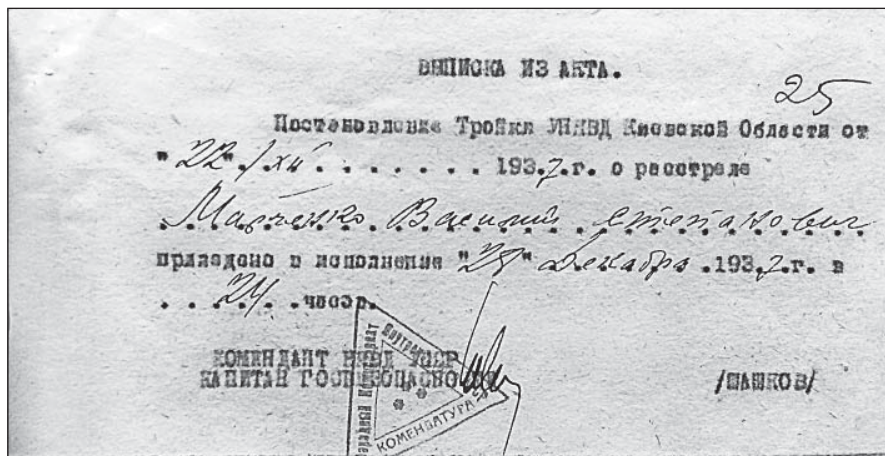 ВЫПИСКА ИЗ АКТА.
25
Постановление Тройки УНКВД Киевской Области от
"22"/XII . . . . . . . 1937.г. о расстреле
Василий Степанович
приведено в исполнение " " Декабря .1937.г. в
. . 24. .часов.
КОМЕНДАНТ НКВД УССР
КАПИТАН ГОСБЕЗОПАСНОСТИ /ШАШКОВ/
Народный Комиссариат
Внутрен
КОМЕНДАТУРА